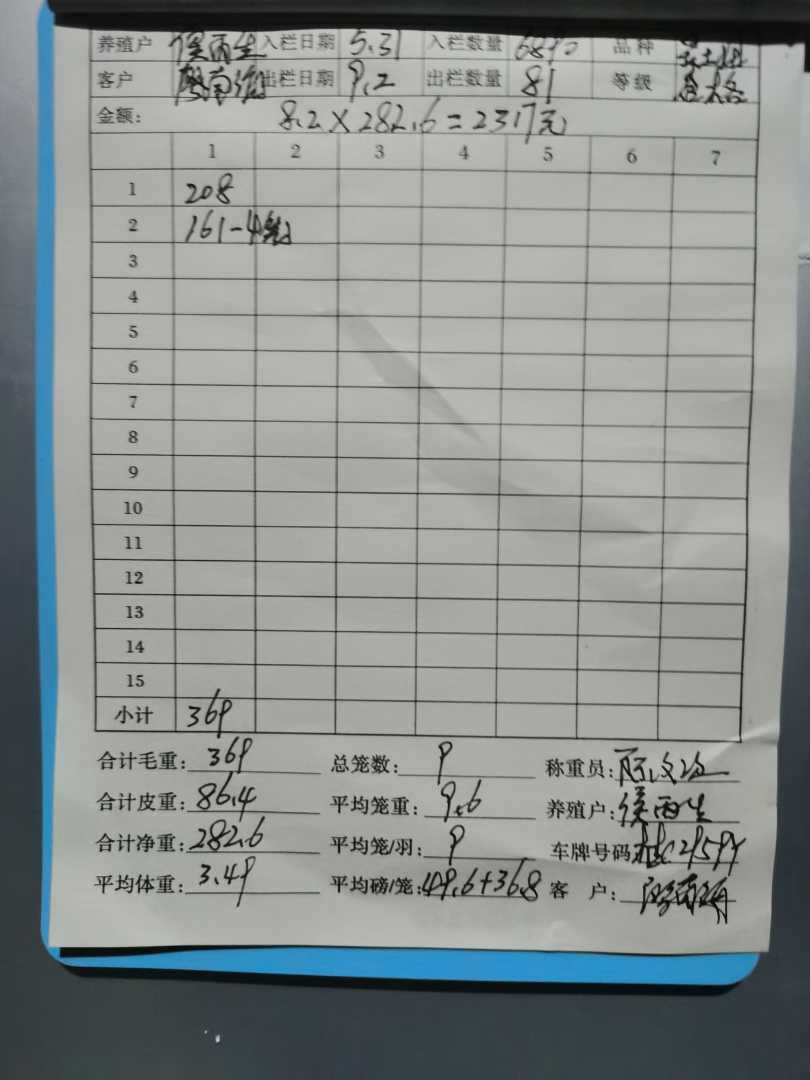 养殖户 侯丙生 入栏日期 5.31 入栏数量 6890 品种
客户 出栏日期 9.2 出栏数量 81 等级
金额: 8.2×282.6=2317元
1 2 3 4 5 6 7
1 208
2 161-4
3
4
5
6
7
8
9
10
11
12
13
14
15
小计 369
合计毛重: 369 总笼数: 9 称重员:
合计皮重: 86.4 平均笼重: 9.6 养殖户: 侯丙生
合计净重: 282.6 平均笼/羽: 9 车牌号码:
平均体重: 3.49 平均磅/笼: 49.6+36.8 客 户: